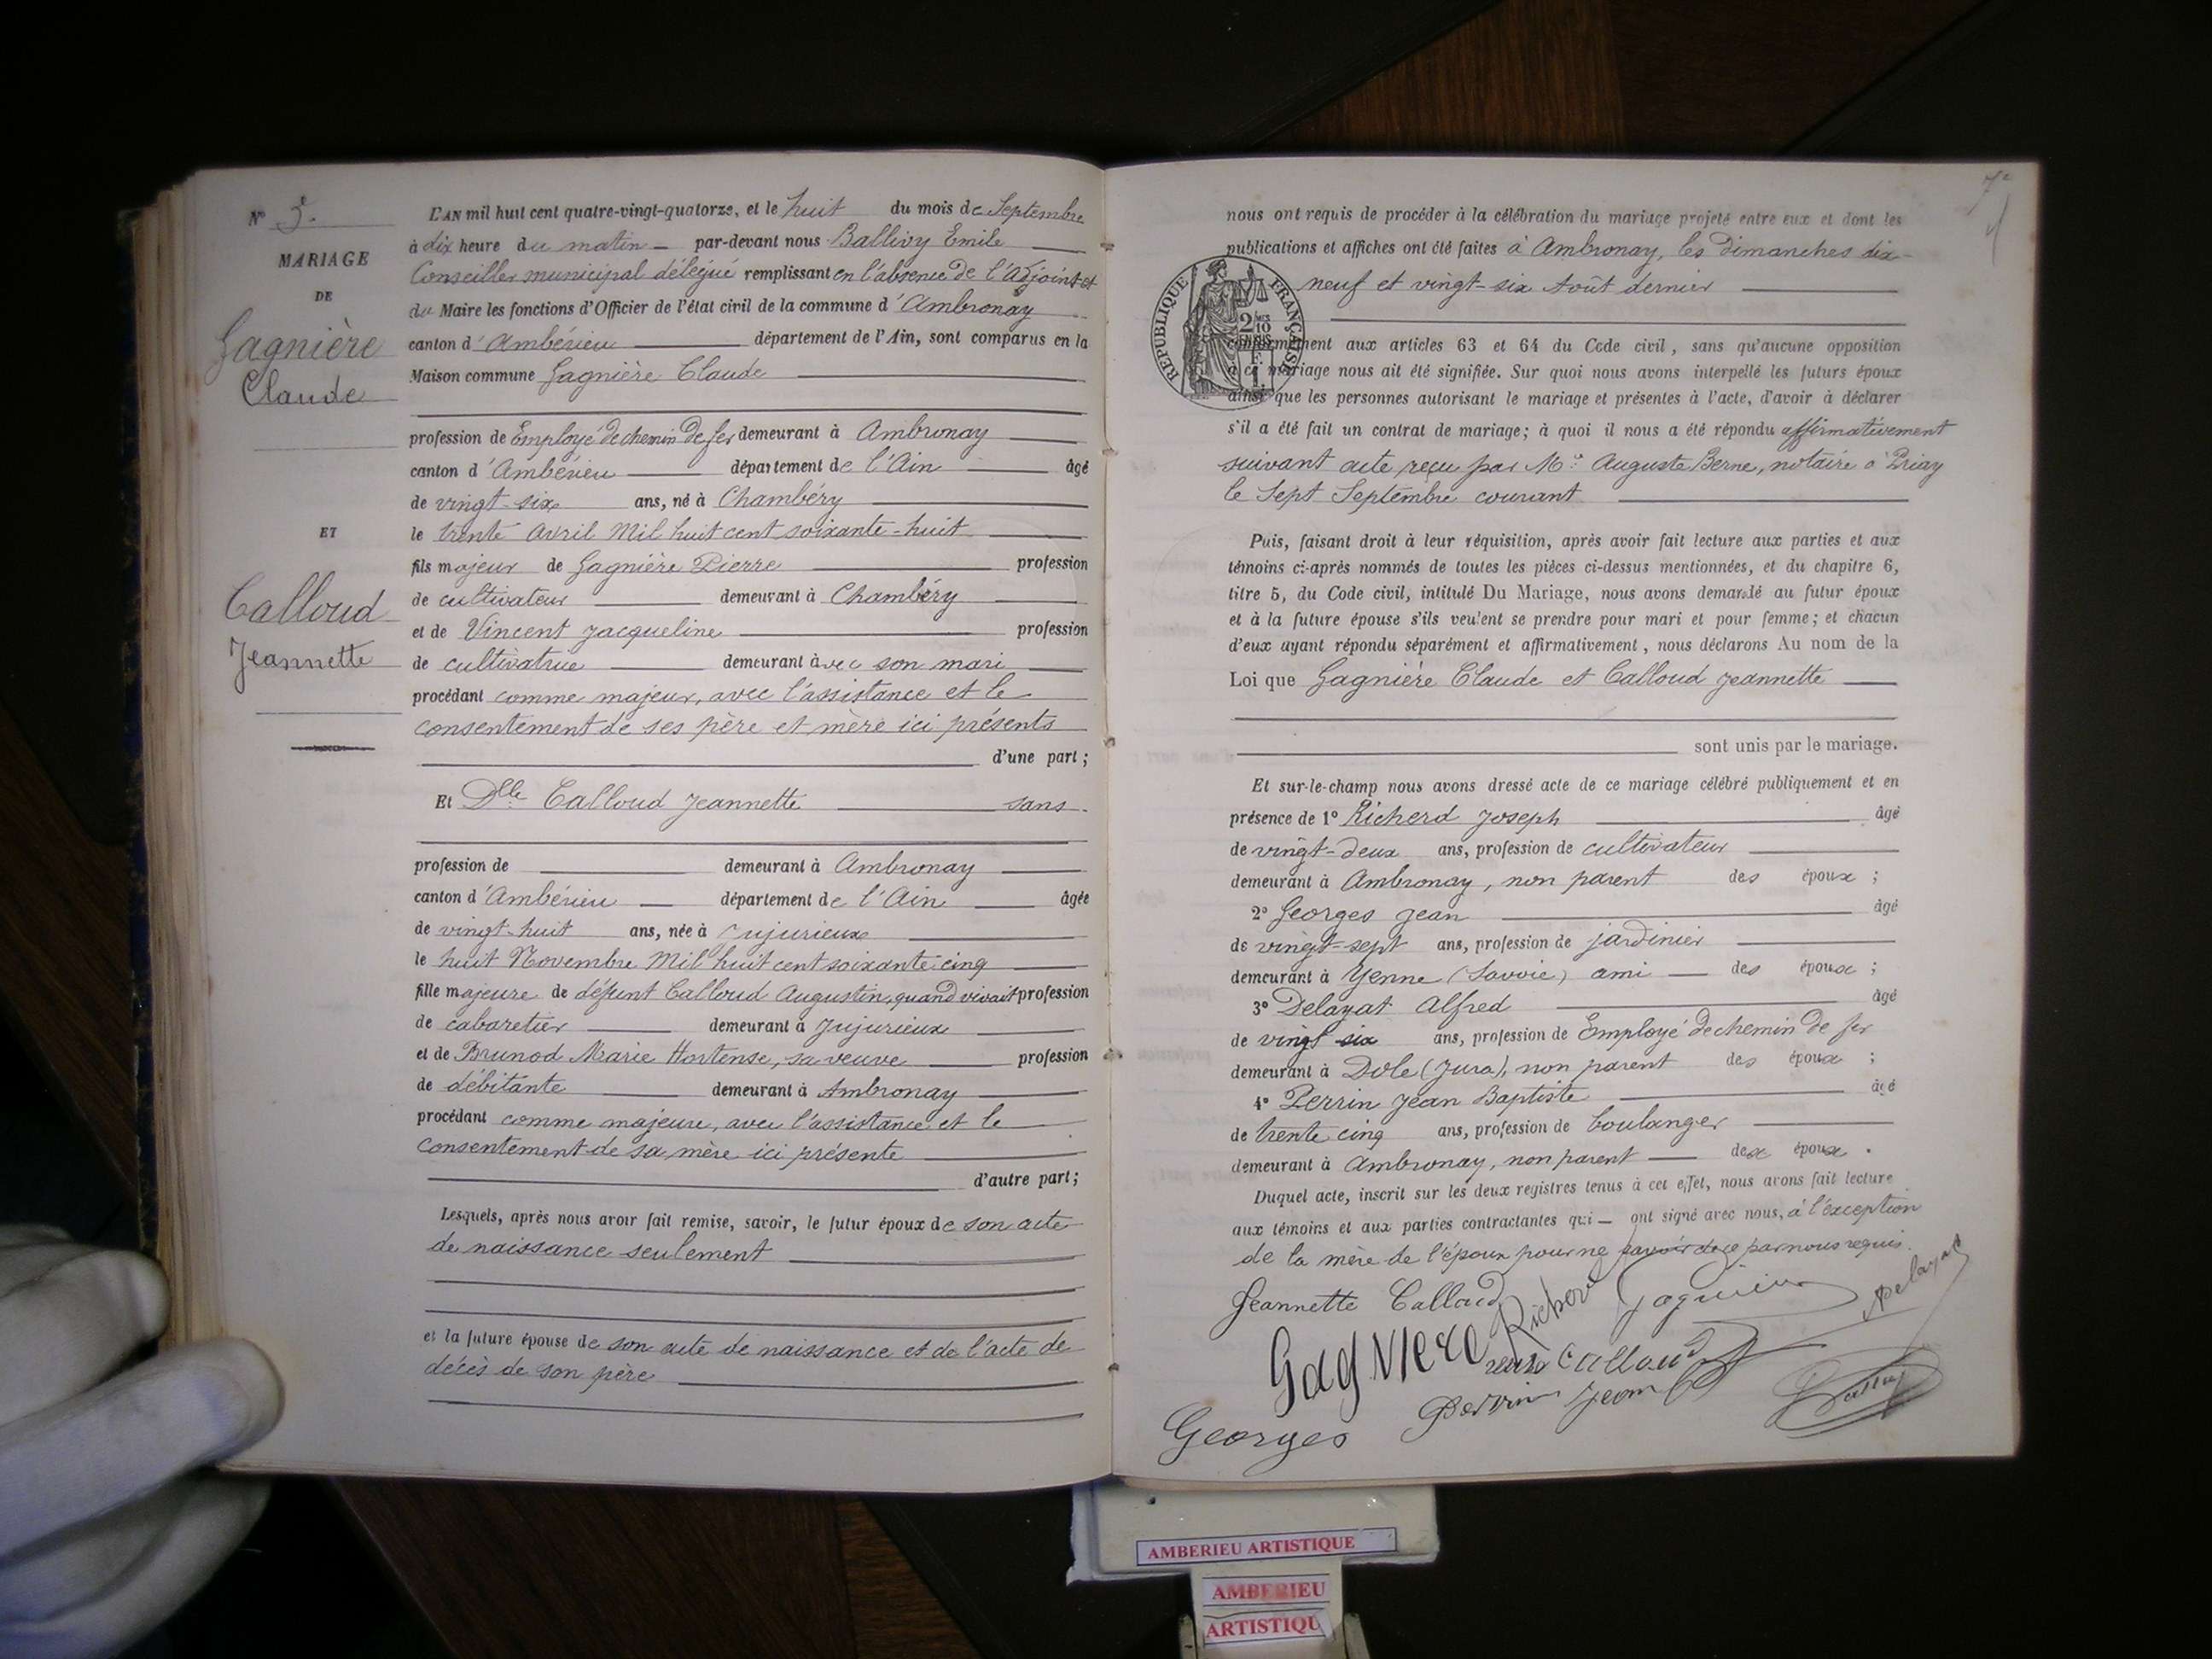 N° 5.
MARIAGE
DE
Gagnière
Claude
ET
Calloud
Jeannette
L'AN mil huit cent quatre-vingt-quatorze, et le huit du mois de Septembre
à dix heure du matin — par-devant nous Ballivy Emile
Conseiller municipal délégué remplissant en l'absence de l'adjoint et
du Maire les fonctions d'Officier de l'état civil de la commune d'Ambronay
canton d'Ambérieu département de l'Ain, sont comparus en la
Maison commune Gagnière Claude
profession de Employé de chemin de fer demeurant à Ambronay
canton d'Ambérieu département de l'Ain âgé
de vingt-six ans, né à Chambéry
le trente Avril Mil huit cent soixante-huit
fils majeur de Gagnière Pierre profession
de cultivateur demeurant à Chambéry
et de Vincent Jacqueline profession
de cultivatrice demeurant avec son mari
procédant comme majeur, avec l'assistance et le
consentement de ses père et mère ici présents
d'une part ;
Et Dlle Calloud Jeannette sans
profession de demeurant à Ambronay
canton d'Ambérieu département de l'Ain âgée
de vingt-huit ans, née à Jujurieux
le huit Novembre Mil huit cent soixante cinq
fille majeure de défunt Calloud Augustin, quand vivait profession
de cabaretier demeurant à Jujurieux
et de Brunod Marie Hortense, sa veuve profession
de débitante demeurant à Ambronay
procédant comme majeure, avec l'assistance et le
consentement de sa mère ici présente
d'autre part ;
Lesquels, après nous avoir fait remise, savoir, le futur époux de son acte
de naissance seulement
et la future épouse de son acte de naissance et de l'acte de
décès de son père
7e
nous ont requis de procéder à la célébration du mariage projeté entre eux et dont les
publications et affiches ont été faites à Ambronay, les dimanches dix-
neuf et vingt-six Août dernier
REPUBLIQUE FRANÇAISE
conformément aux articles 63 et 64 du Code civil, sans qu'aucune opposition
à ce mariage nous ait été signifiée. Sur quoi nous avons interpellé les futurs époux
ainsi que les personnes autorisant le mariage et présentes à l'acte, d'avoir à déclarer
s'il a été fait un contrat de mariage ; à quoi il nous a été répondu affirmativement
suivant acte reçu par Me Auguste Berne, notaire à Priay
le Sept Septembre courant
Puis, faisant droit à leur réquisition, après avoir fait lecture aux parties et aux
témoins ci-après nommés de toutes les pièces ci-dessus mentionnées, et du chapitre 6,
titre 5, du Code civil, intitulé Du Mariage, nous avons demandé au futur époux
et à la future épouse s'ils veulent se prendre pour mari et pour femme ; et chacun
d'eux ayant répondu séparément et affirmativement, nous déclarons Au nom de la
Loi que Gagnière Claude et Calloud Jeannette
sont unis par le mariage.
Et sur-le-champ nous avons dressé acte de ce mariage célébré publiquement et en
présence de 1° Richerd Joseph âgé
de vingt-deux ans, profession de cultivateur
demeurant à Ambronay, non parent des époux ;
2° Georges Jean âgé
de vingt-sept ans, profession de jardinier
demeurant à Yenne (Savoie) ami — des époux ;
3° Delayat Alfred âgé
de vingt six ans, profession de Employé de chemin de fer
demeurant à Dole (Jura), non parent des époux ;
4° Perrin Jean Baptiste âgé
de trente cinq ans, profession de boulanger
demeurant à Ambronay, non parent — des époux .
Duquel acte, inscrit sur les deux registres tenus à cet effet, nous avons fait lecture
aux témoins et aux parties contractantes qui — ont signé avec nous, à l'exception
de la mère de l'époux pour ne savoir de ce par nous requis.
Jeannette Calloud Richerd Gagnière Delayat
Gagniere veuve Calloud
Perrin Jean
Georges
AMBERIEU ARTISTIQUE
AMBERIEU
ARTISTIQU